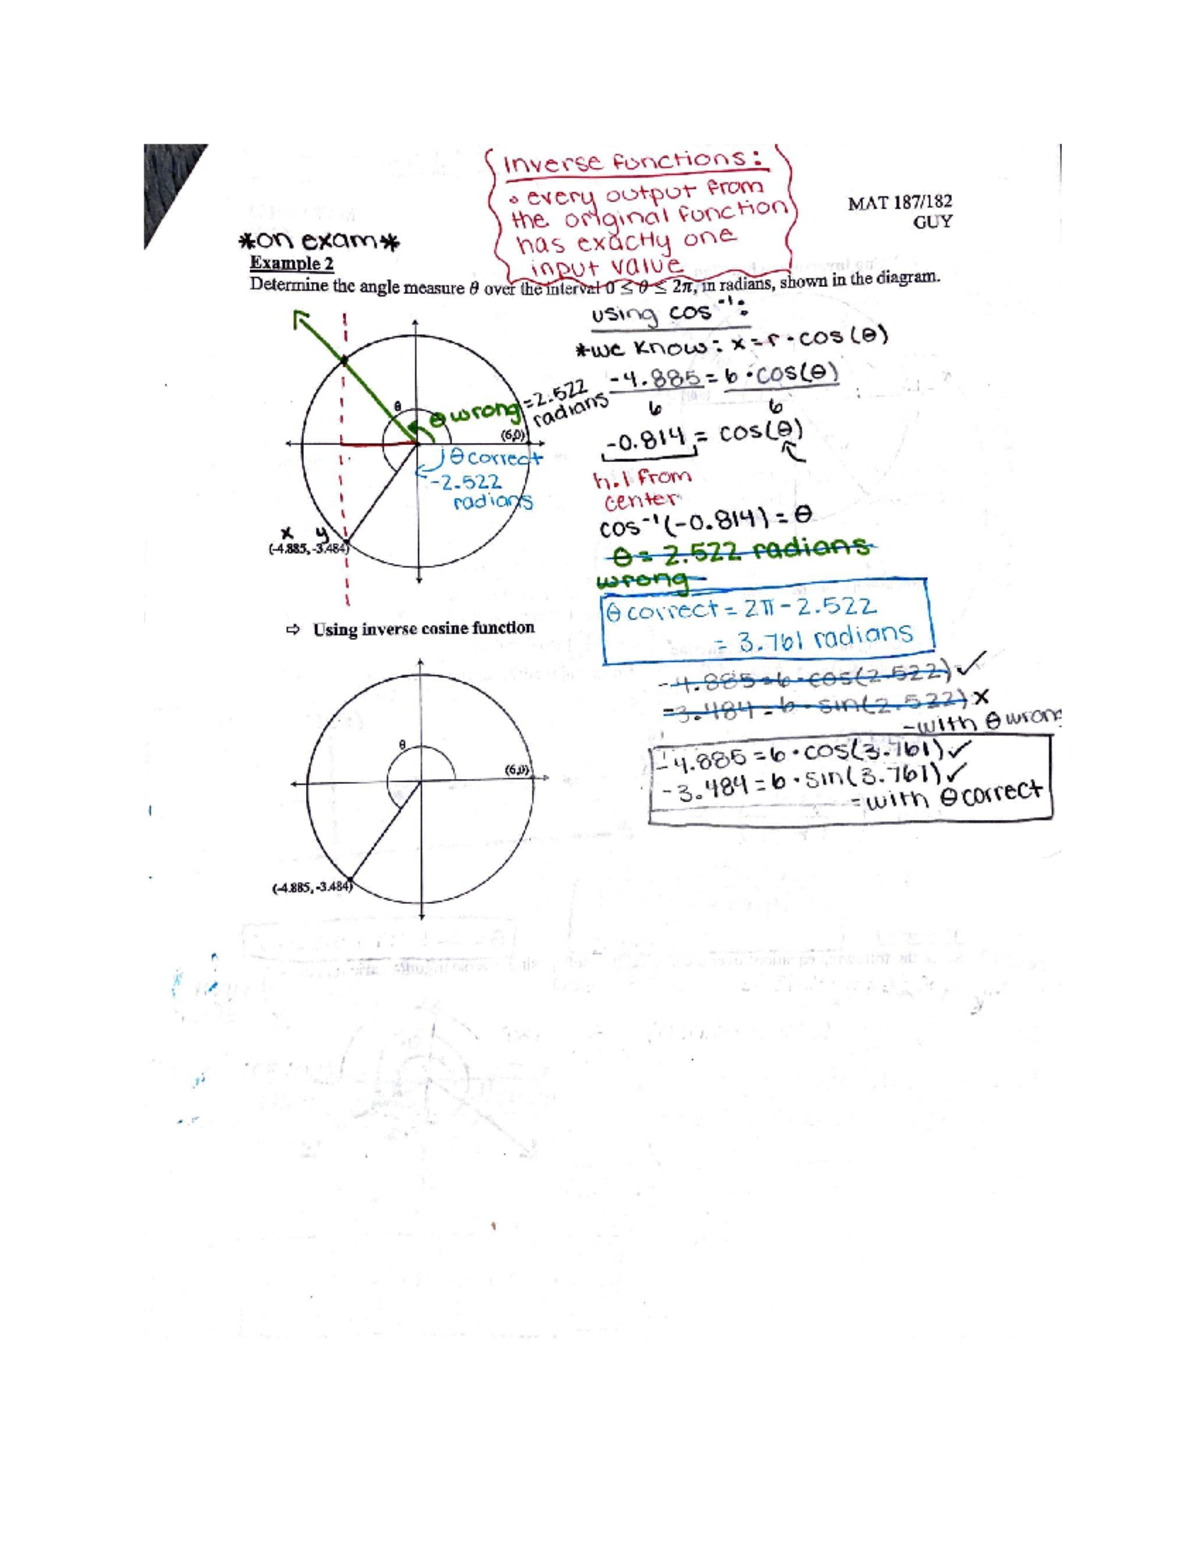 Inverse functions:
• every output from
the original function
has exactly one
input value
MAT 187/182
GUY
*on exam*
Example 2
Determine the angle measure θ over the interval 0 ≤ θ ≤ 2π, in radians, shown in the diagram.
using cos⁻¹:
*we know: x = r · cos(θ)
-4.885 = 6 · cos(θ)
6 6
-0.814 = cos(θ)
h.l from
center
cos⁻¹(-0.814) = θ
θ = 2.522 radians
wrong
θ correct = 2π - 2.522
= 3.761 radians
-4.885 = 6 · cos(2.522) ✓
-3.484 = 6 · sin(2.522) x
-with θ wrong
-4.885 = 6 · cos(3.761) ✓
-3.484 = 6 · sin(3.761) ✓
=with θ correct
θ
θ wrong = 2.522
radians
(6,0)
θ correct
-2.522
radians
x y
(-4.885, -3.484)
⇨ Using inverse cosine function
θ
(6,0)
(-4.885, -3.484)